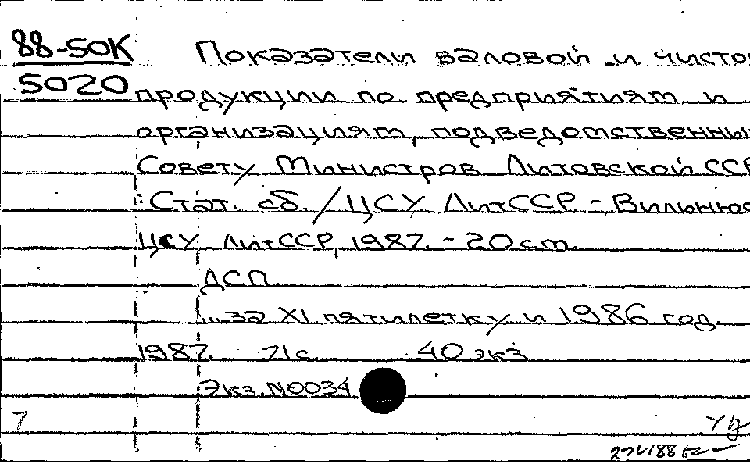 88-50К
5020
Показатели валовой и чисто
продукции по предприятиям и
организациям, подведомственны
Совету Министров Литовской ССР
: Стат. сб. / ЦСУ ЛитССР. - Вильнюс
ЦСУ ЛитССР, 1987. - 20 см.
ДСП
... за XI пятилетку и 1986 год.
1987. 71 с. 40 экз.
Экз. N0034
7